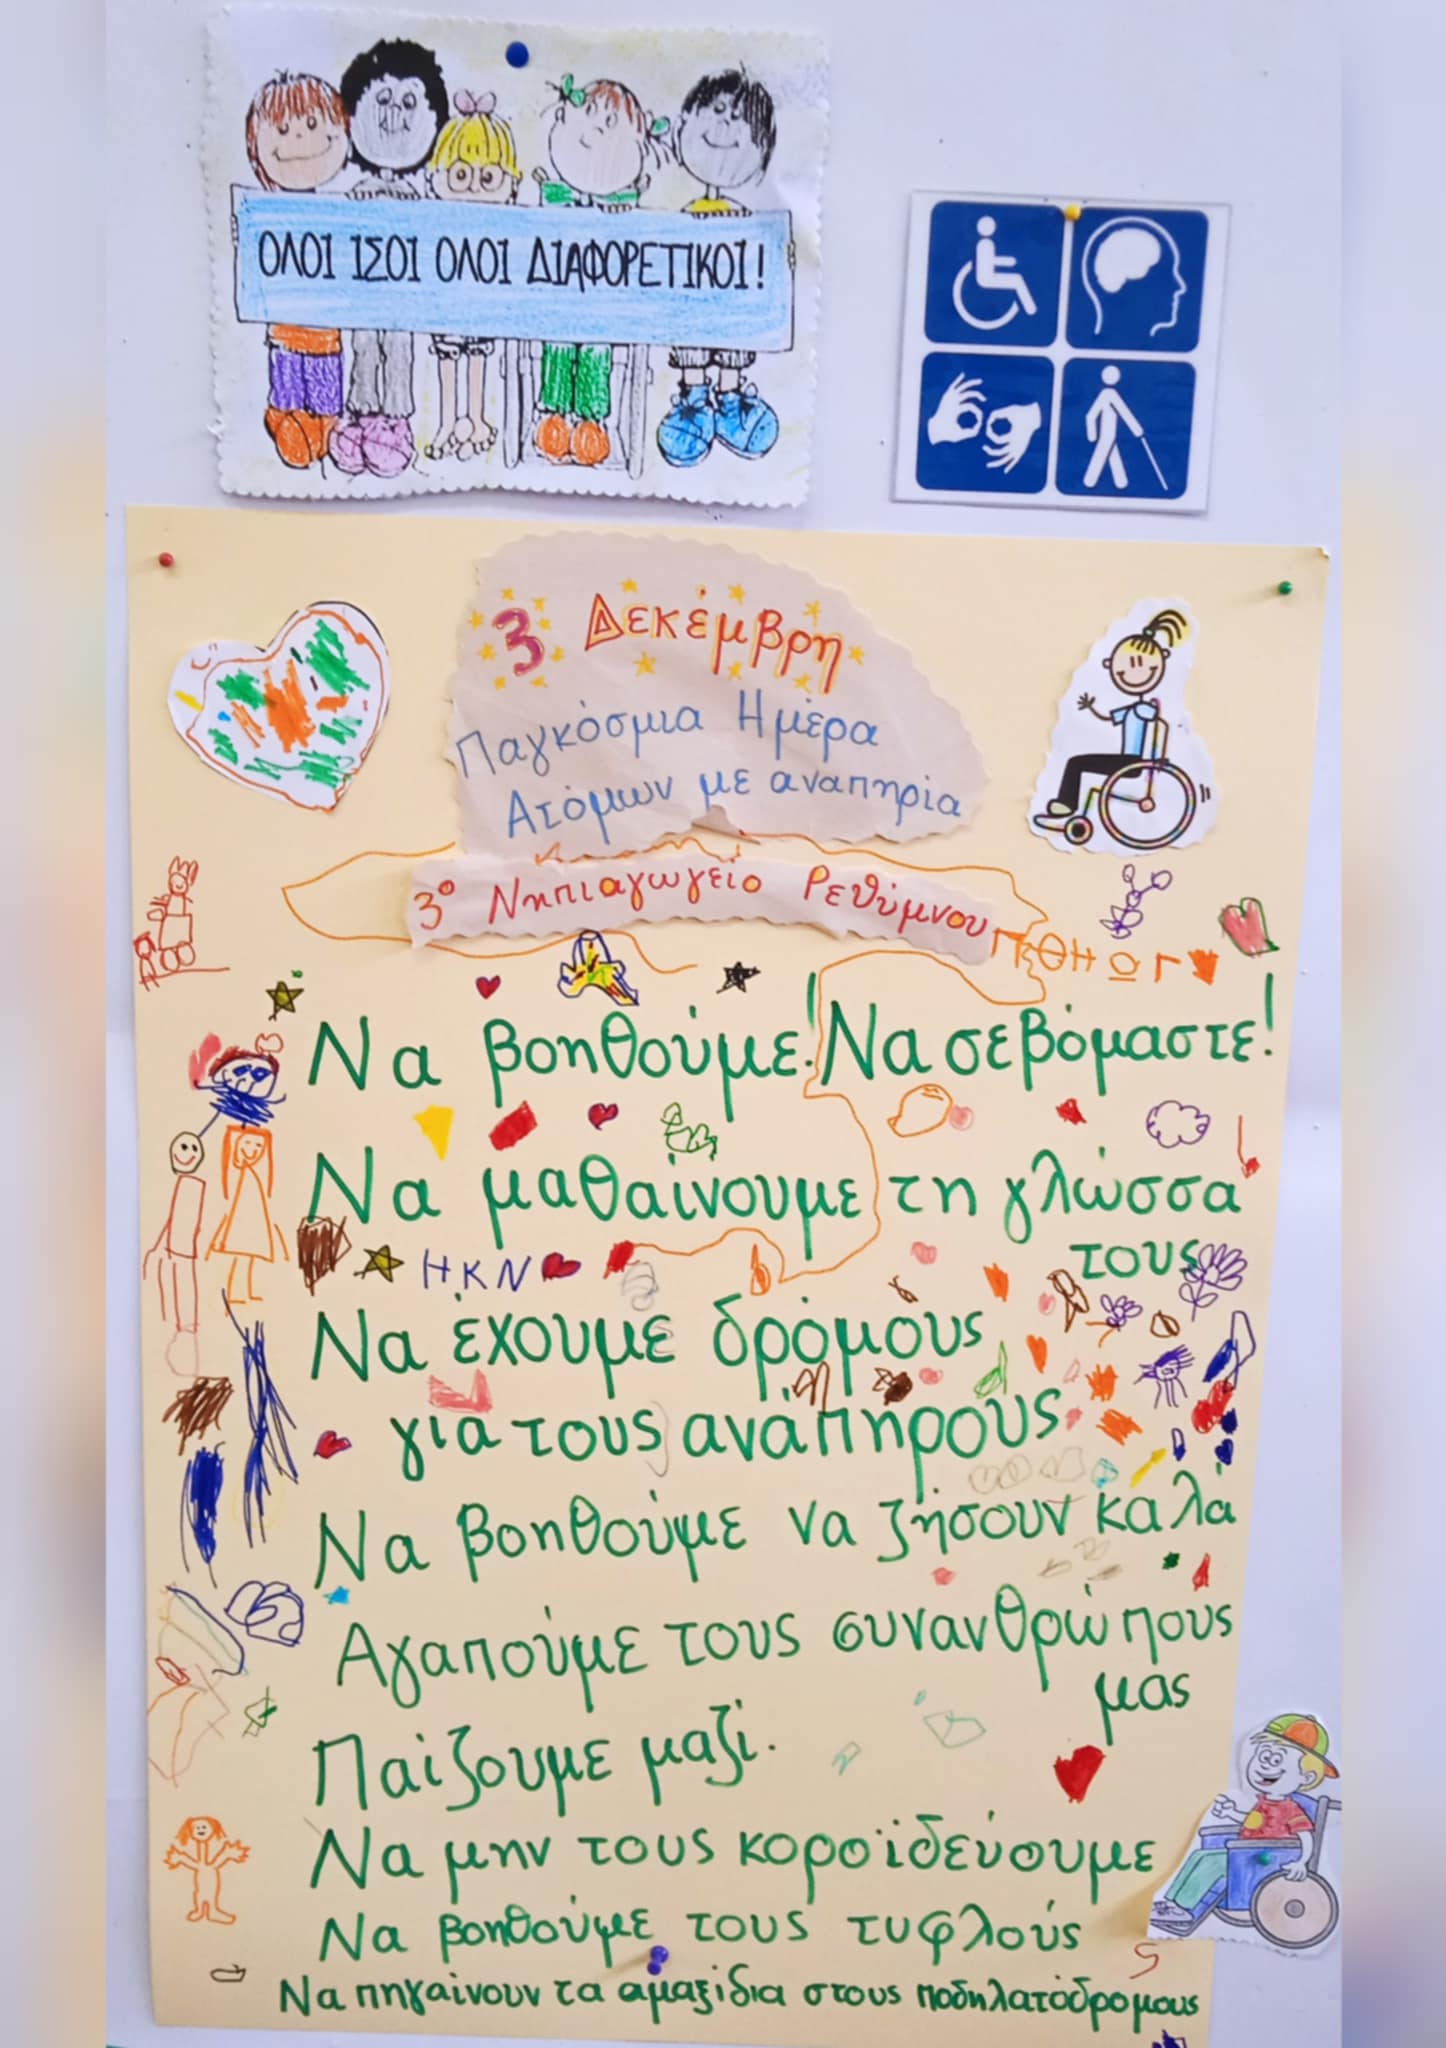 ΟΛΟΙ ΙΣΟΙ ΟΛΟΙ ΔΙΑΦΟΡΕΤΙΚΟΙ!
3 Δεκέμβρη
Παγκόσμια Ημέρα
Ατόμων με αναπηρία
3º Νηπιαγωγείο Ρεθύμνου
Να βοηθούμε! Να σεβόμαστε!
Να μαθαίνουμε τη γλώσσα
τους
ΗΚΝ
Να έχουμε δρόμους
για τους ανάπηρους
Να βοηθούμε να ζήσουν καλά
Αγαπούμε τους συνανθρώπους
μας
Παίζουμε μαζί.
Να μην τους κοροϊδεύουμε
Να βοηθούμε τους τυφλούς
Να πηγαίνουν τα αμαξίδια στους ποδηλατόδρομους